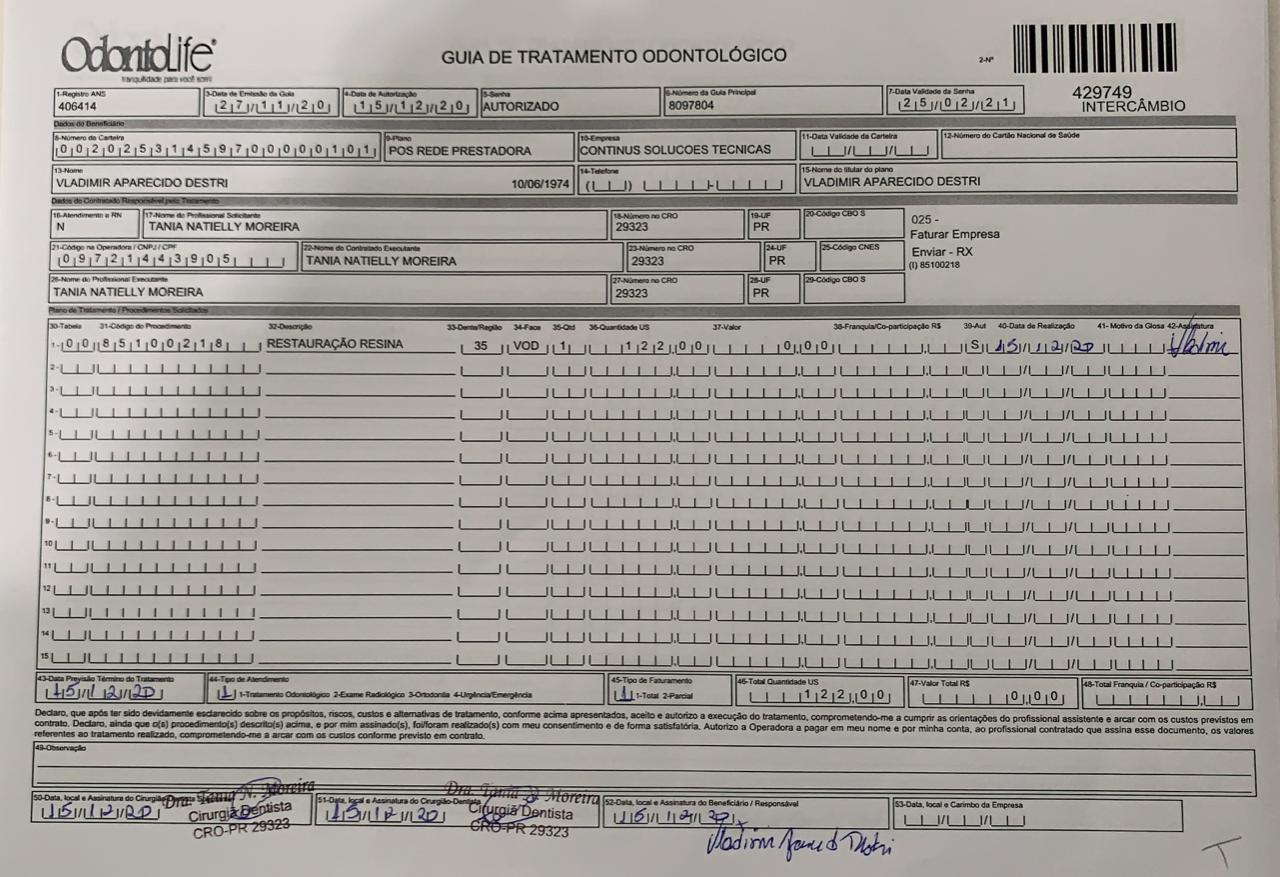 OdontoLife®
tranquilidade para você sorrir
GUIA DE TRATAMENTO ODONTOLÓGICO
2-Nº
429749
INTERCÂMBIO
1-Registro ANS 3-Data de Emissão da Guia 4-Data de Autorização 5-Senha 6-Número da Guia Principal 7-Data Validade da Senha
406414 27/11/20 15/12/20 AUTORIZADO 8097804 25/02/21
Dados do Beneficiário
8-Número da Carteira 9-Plano 10-Empresa 11-Data Validade da Carteira 12-Número do Cartão Nacional de Saúde
00202531459700000101 POS REDE PRESTADORA CONTINUS SOLUCOES TECNICAS
13-Nome 14-Telefone 15-Nome do titular do plano
VLADIMIR APARECIDO DESTRI 10/06/1974 VLADIMIR APARECIDO DESTRI
Dados do Contratado Responsável pelo Tratamento
16-Atendimento a RN 17-Nome do Profissional Solicitante 18-Número no CRO 19-UF 20-Código CBO S
N TANIA NATIELLY MOREIRA 29323 PR
025 -
Faturar Empresa
Enviar - RX
(I) 85100218
21-Código na Operadora / CNPJ / CPF 22-Nome do Contratado Executante 23-Número no CRO 24-UF 25-Código CNES
09721443905 TANIA NATIELLY MOREIRA 29323 PR
26-Nome do Profissional Executante 27-Número no CRO 28-UF 29-Código CBO S
TANIA NATIELLY MOREIRA 29323 PR
Plano de Tratamento / Procedimentos Solicitados
30-Tabela 31-Código do Procedimento 32-Descrição 33-Dente/Região 34-Face 35-Qtd 36-Quantidade US 37-Valor 38-Franquia/Co-participação R$ 39-Aut 40-Data de Realização 41- Motivo da Glosa 42-Assinatura
1- 00 85100218 RESTAURAÇÃO RESINA 35 VOD 1 122,00 0,00 S 15/12/20
2-
3-
4-
5-
6-
7-
8-
9-
10
11
12
13
14
15
43-Data Previsão Término do Tratamento 44-Tipo de Atendimento 45-Tipo de Faturamento 46-Total Quantidade US 47-Valor Total R$ 48-Total Franquia / Co-participação R$
15/12/20 1 1-Tratamento Odontológico 2-Exame Radiológico 3-Ortodontia 4-Urgência/Emergência 1 1-Total 2-Parcial 122,00 0,00
Declaro, que após ter sido devidamente esclarecido sobre os propósitos, riscos, custos e alternativas de tratamento, conforme acima apresentados, aceito e autorizo a execução do tratamento, comprometendo-me a cumprir as orientações do profissional assistente e arcar com os custos previstos em
contrato. Declaro, ainda que o(s) procedimento(s) descrito(s) acima, e por mim assinado(s), foi/foram realizado(s) com meu consentimento e de forma satisfatória. Autorizo a Operadora a pagar em meu nome e por minha conta, ao profissional contratado que assina esse documento, os valores
referentes ao tratamento realizado, comprometendo-me a arcar com os custos conforme previsto em contrato.
49-Observação
50-Data, local e Assinatura do Cirurgião-Dentista 51-Data, local e Assinatura do Cirurgião-Dentista 52-Data, local e Assinatura do Beneficiário / Responsável 53-Data, local e Carimbo da Empresa
15/12/20 15/12/20 15/12/20
Dra. Tania N. Moreira
Cirurgiã Dentista
CRO-PR 29323
Dra. Tania N. Moreira
Cirurgiã Dentista
CRO-PR 29323